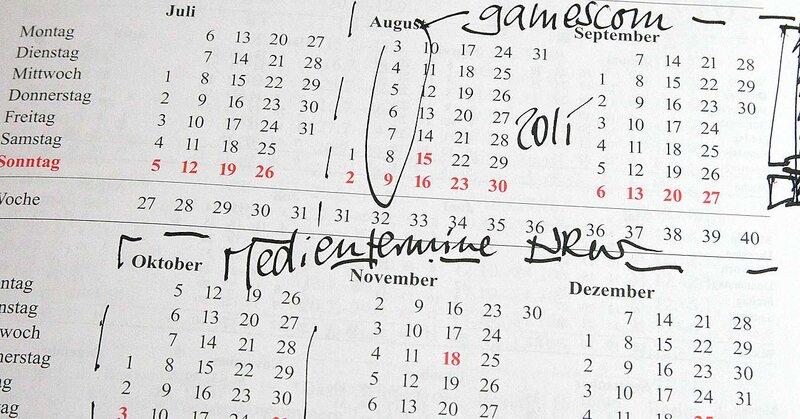 Juli August gamescom September
Montag 6 13 20 27 3 10 17 24 31 7 14 21 28
Dienstag 7 14 21 28 4 11 18 25 1 8 15 22 29
Mittwoch 1 8 15 22 29 5 12 19 26 2 9 16 23 30
Donnerstag 2 9 16 23 30 6 13 20 27 3 10 17 24
Freitag 3 10 17 24 31 7 14 21 28 4 11 18 25
Samstag 4 11 18 25 1 8 15 22 29 5 12 19 26
Sonntag 5 12 19 26 2 9 16 23 30 6 13 20 27
Woche 27 28 29 30 31 31 32 33 34 35 36 36 37 38 39 40
Medientermine NRW
Oktober November Dezember
ntag 5 12 19 26 2 9 16 23 30 7 14 21 28
nstag 6 13 20 27 3 10 17 24 1 8 15 22 29
woch 7 14 21 28 4 11 18 25 2 9 16 23 30
nerstag 1 8 15 22 29 5 12 19 26 3 10 17 24 31
tag 2 9 16 23 30 6 13 20 27 4 11 18
3 10 17 24